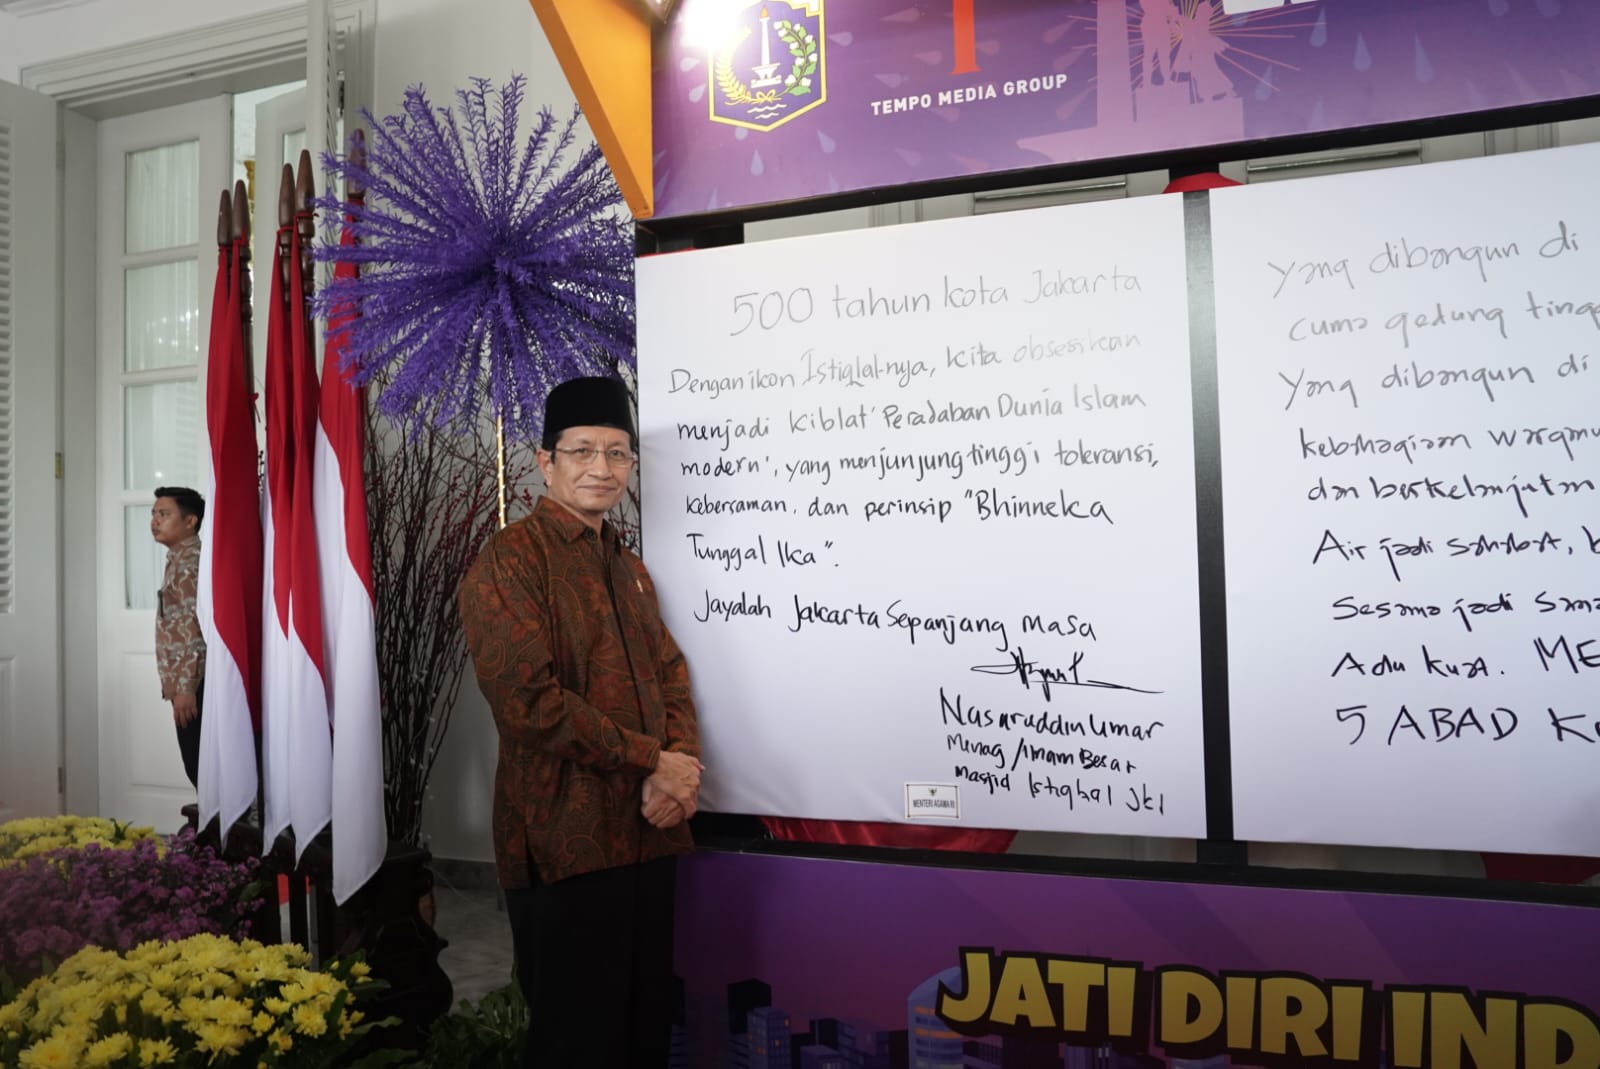 TEMPO MEDIA GROUP
500 tahun kota Jakarta
Dengan ikon Istiqlal-nya, kita obsesikan
menjadi kiblat 'Peradaban Dunia Islam
modern', yang menjunjung tinggi toleransi,
kebersaman, dan perinsip "Bhinneka
Tunggal Ika".
Jayalah Jakarta Sepanjang Masa
Nasaruddin Umar
Menag /Imam Besar
Masjid Istiqlal Jkt
MENTERI AGAMA RI
Yang dibangun di
cuma gedung
Yang dibangun di
kebahagiaan
dan berkelanjutan
Air jadi sahabat,
Sesama jadi
Adu kuat.
5 ABAD
JATI DIRI IND